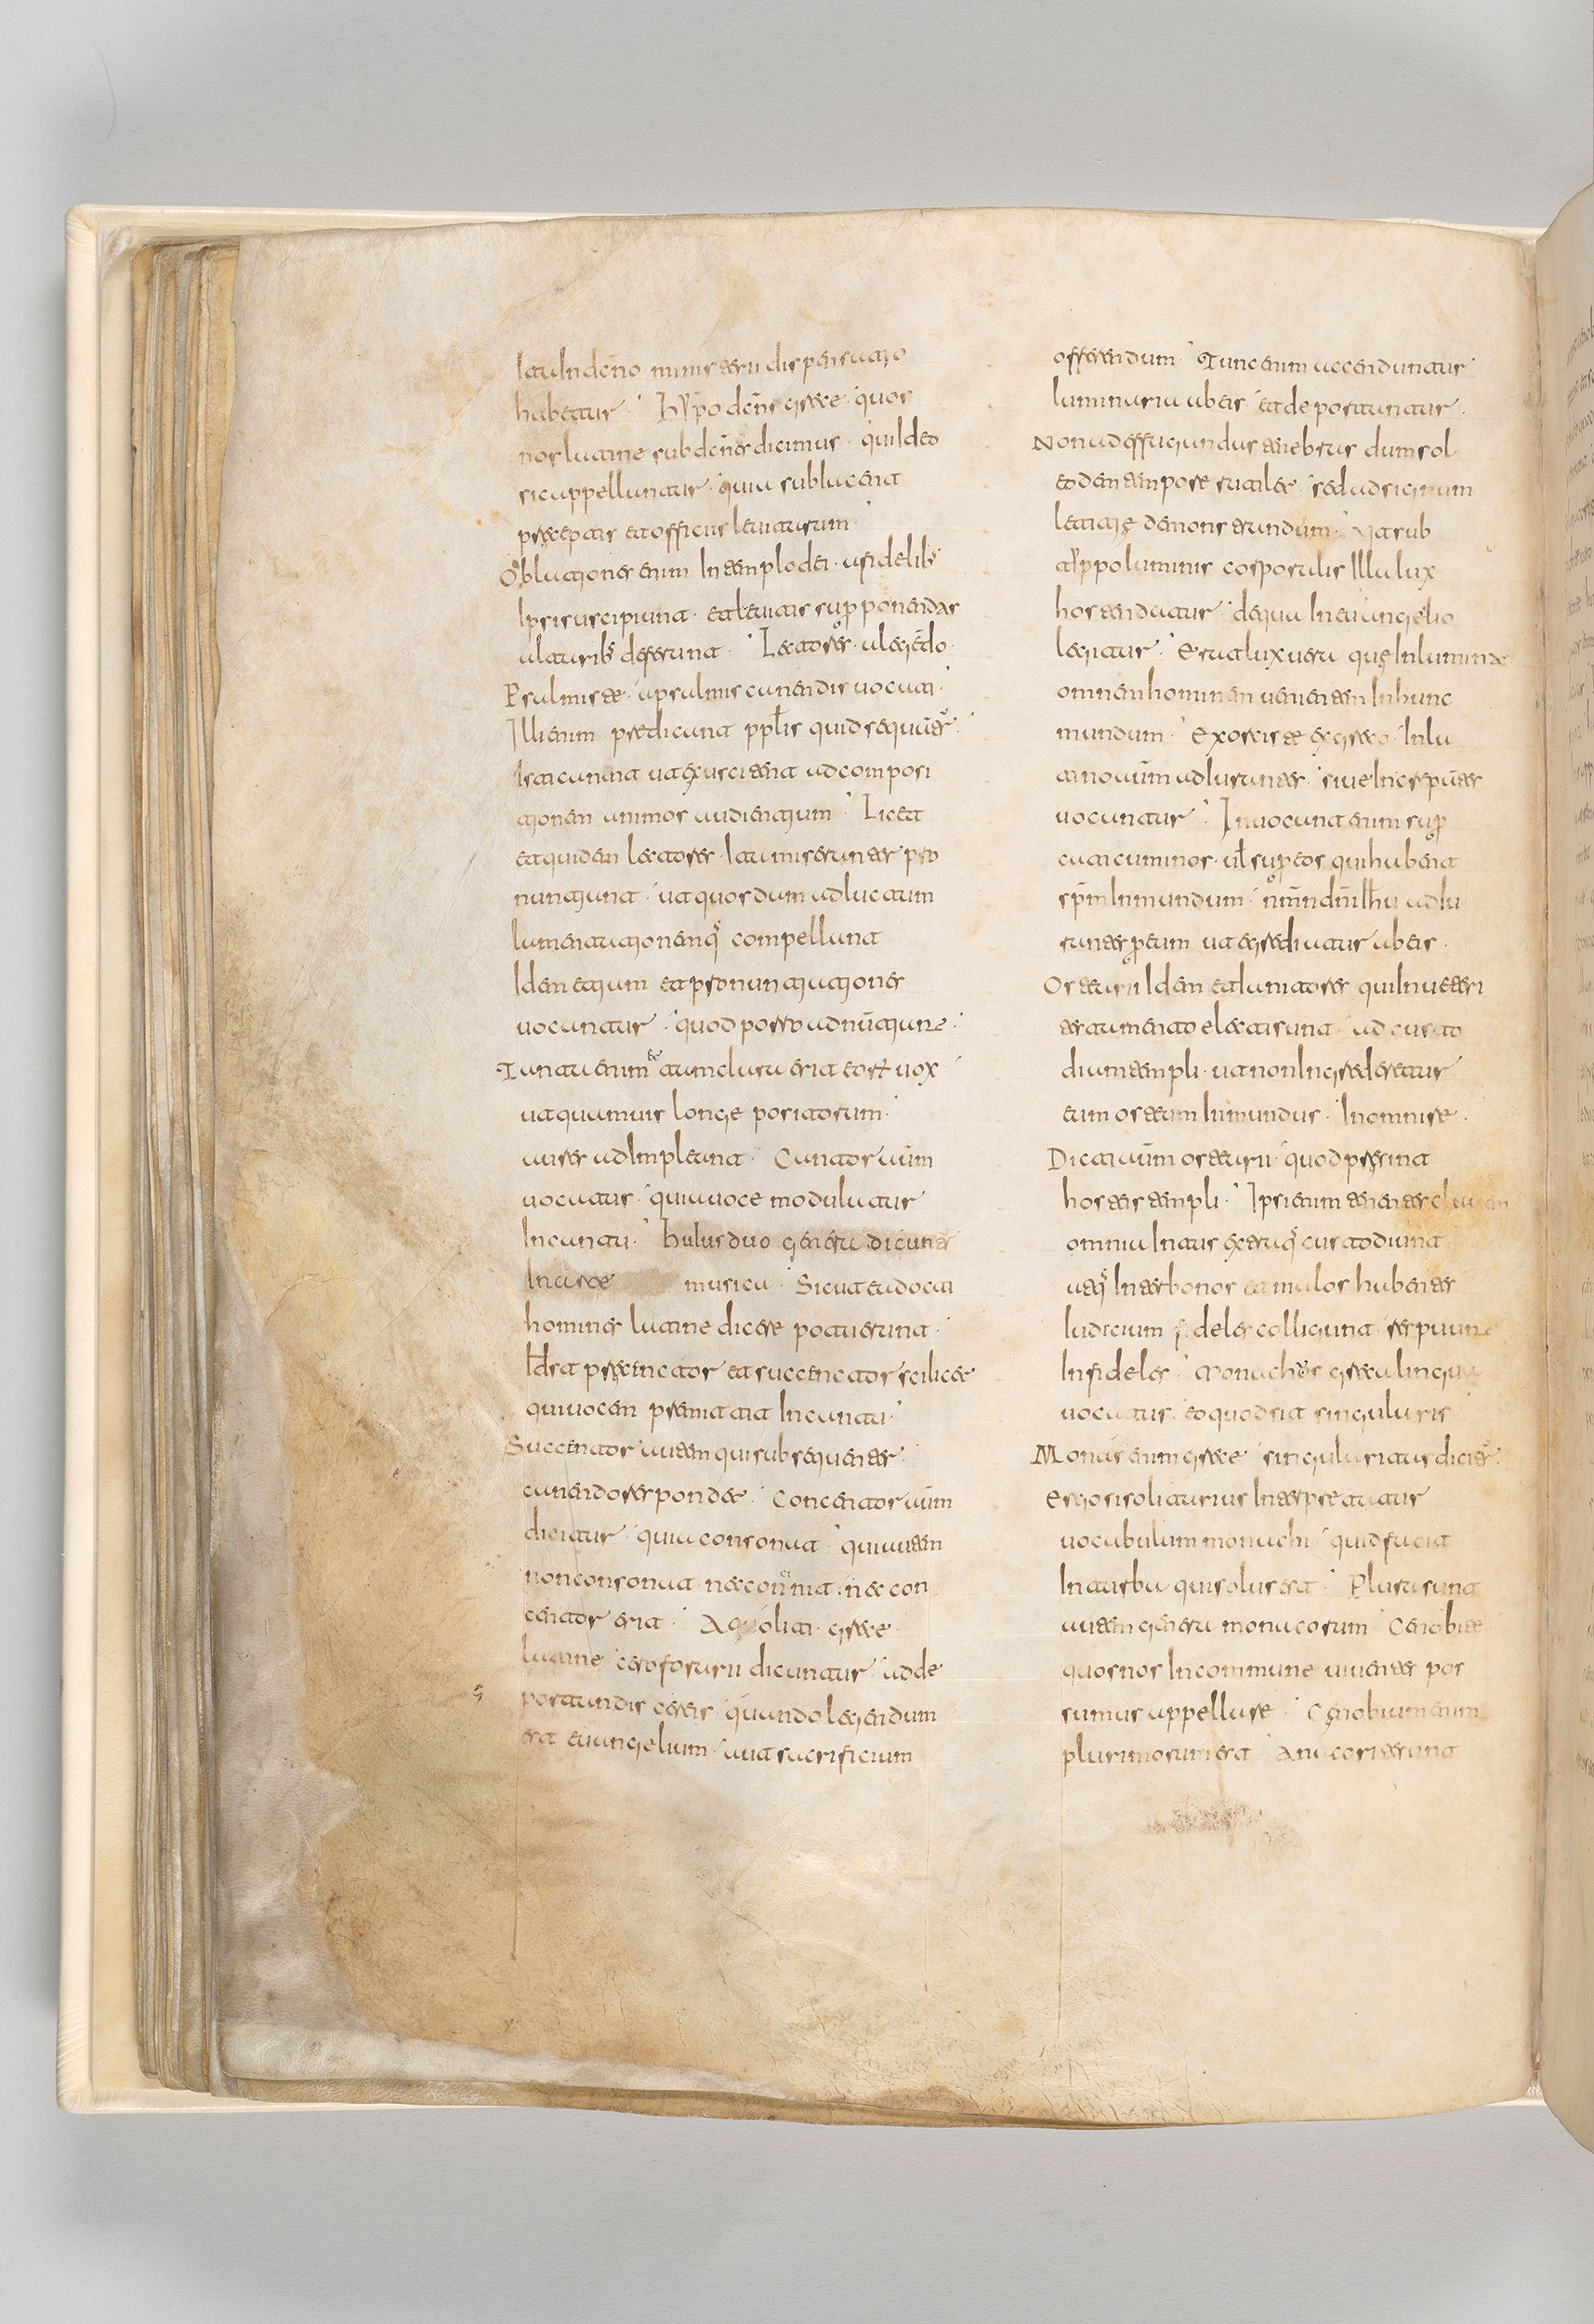 Ita In dcño ministerii dispensatio
habetur. Hypodcñs grece. quos
nos latine subdcñes dicimus. qui Ideo
sic appellantur. quia sublacent
preceptis et officiis levitarum.
Oblationes enim In templo dei. a fidelibs
Ipsi suscipiunt. et levitis superponendas
altaribs deferunt. Lectores. a legẽdo.
Psalmistae. a psalmis canendis vocati.
Illi enim predicant pplis quid sequãtur.
Isti canunt ut excitent ad compositi
tionem animos audientium. Licet
et quidam lectores. Ita miseranter pro
nuntiant. ut quosdam ad luctum
lamentationemq; compellant
Idem etiam et pronuntiationes
vocantur. quod porro adnũtiant.
Tanta enim et tam clara erit eorum vox
ut quamvis longe positorum
aures adImpleant. Cantor aũm
vocatur. quia voce modulatur
In cantu. Huius duo genera dicuntur
In arte musica. Sicut ea docti
homines latine dicere potuerunt.
Id est precentor et succentor scilicet
qui vocem premittit In cantu.
Succentor autem qui subsequenter
canendo respondet. Concentor aũm
dicitur. quia consonat. qui autem
non consonat nec concinit. nec con
centor erit. Acoliti grece.
latine ceroforarii dicuntur. a de
portandis cereis. quando legendum
est evangelium. aut sacrificium
offerendum. Tunc enim accenduntur
luminaria ab eis. et deportantur.
Non ad effugandas tenebras dum sol
eodem tempore rutilet. sed ad signum
letitie demonstrandum. Ut sub
typpo luminis corporalis Illa lux
hostendatur. de qua In evangelio
legitur. Erat lux vera que Inluminat
omnem hominem venientem In hunc
mundum. Exorcistae ex greco. In la
tino aũm adIurantes. sive Increpãtes
vocantur. Invocant enim super
caticuminos. vl super eos qui habent
spm̃ Inmundum. nmñ dñi Ihu adIu
rantes per eum ut egrediatur ab eis.
Ostiarii Idem et Ianitores qui In veteri
testamento electi sunt. ad custo
diam templi. ut non Ingrederetur
eum ostium Inmundus. In omni re.
Dicti aũm ostiarii. quod presint
hostiis templi. Ipsi enim tenentes clavem
omnia Intus extraq; custodiunt
atq; Inter bonos et malos habentes
Iudicium fideles colligunt. respuunt
Infideles. Monachus greca lingua
vocatur. eo quod sit singularis
Monas enim grece singularitas dicitur.
Ergo si solitarius Interpretatur
vocabulum monachi. quid facit
In turba qui solus est. Plura sunt
autem genera monacorum. Cenobite
quos nos In commune viventes pos
sumus appellare. Cenobium enim
plurimorum est. Anacorite sunt